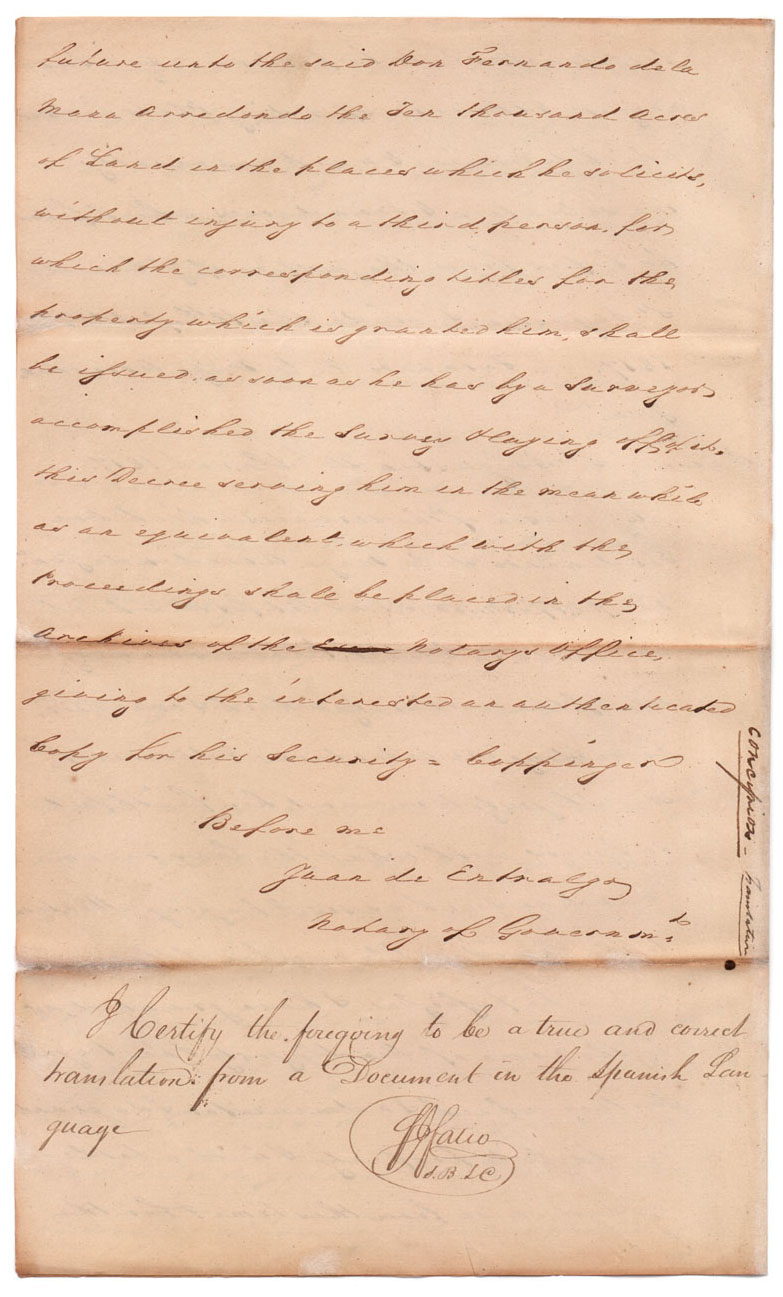 future unto the said Don Fernando de la
Maza Arredondo the Ten thousand Acres
of Land in the places which he solicits,
without injury to a third person, for
which the corresponding titles for the
property which is granted him, shall
be issued, as soon as he has by a Surveyor
accomplished the Survey & laying off of it,
this Decree serving him in the mean while
as an equivalent, which with the
Proceedings shall be placed in the
archives of the Notarys Office,
giving to the interested an authenticated
Copy for his Security = Coppinger
Before me
Juan de Entralgo
Notary of Governmt
I Certify the foregoing to be a true and correct
translation from a Document in the Spanish Lan
guage
Fatio
S.B.L.C
Concession - Translation